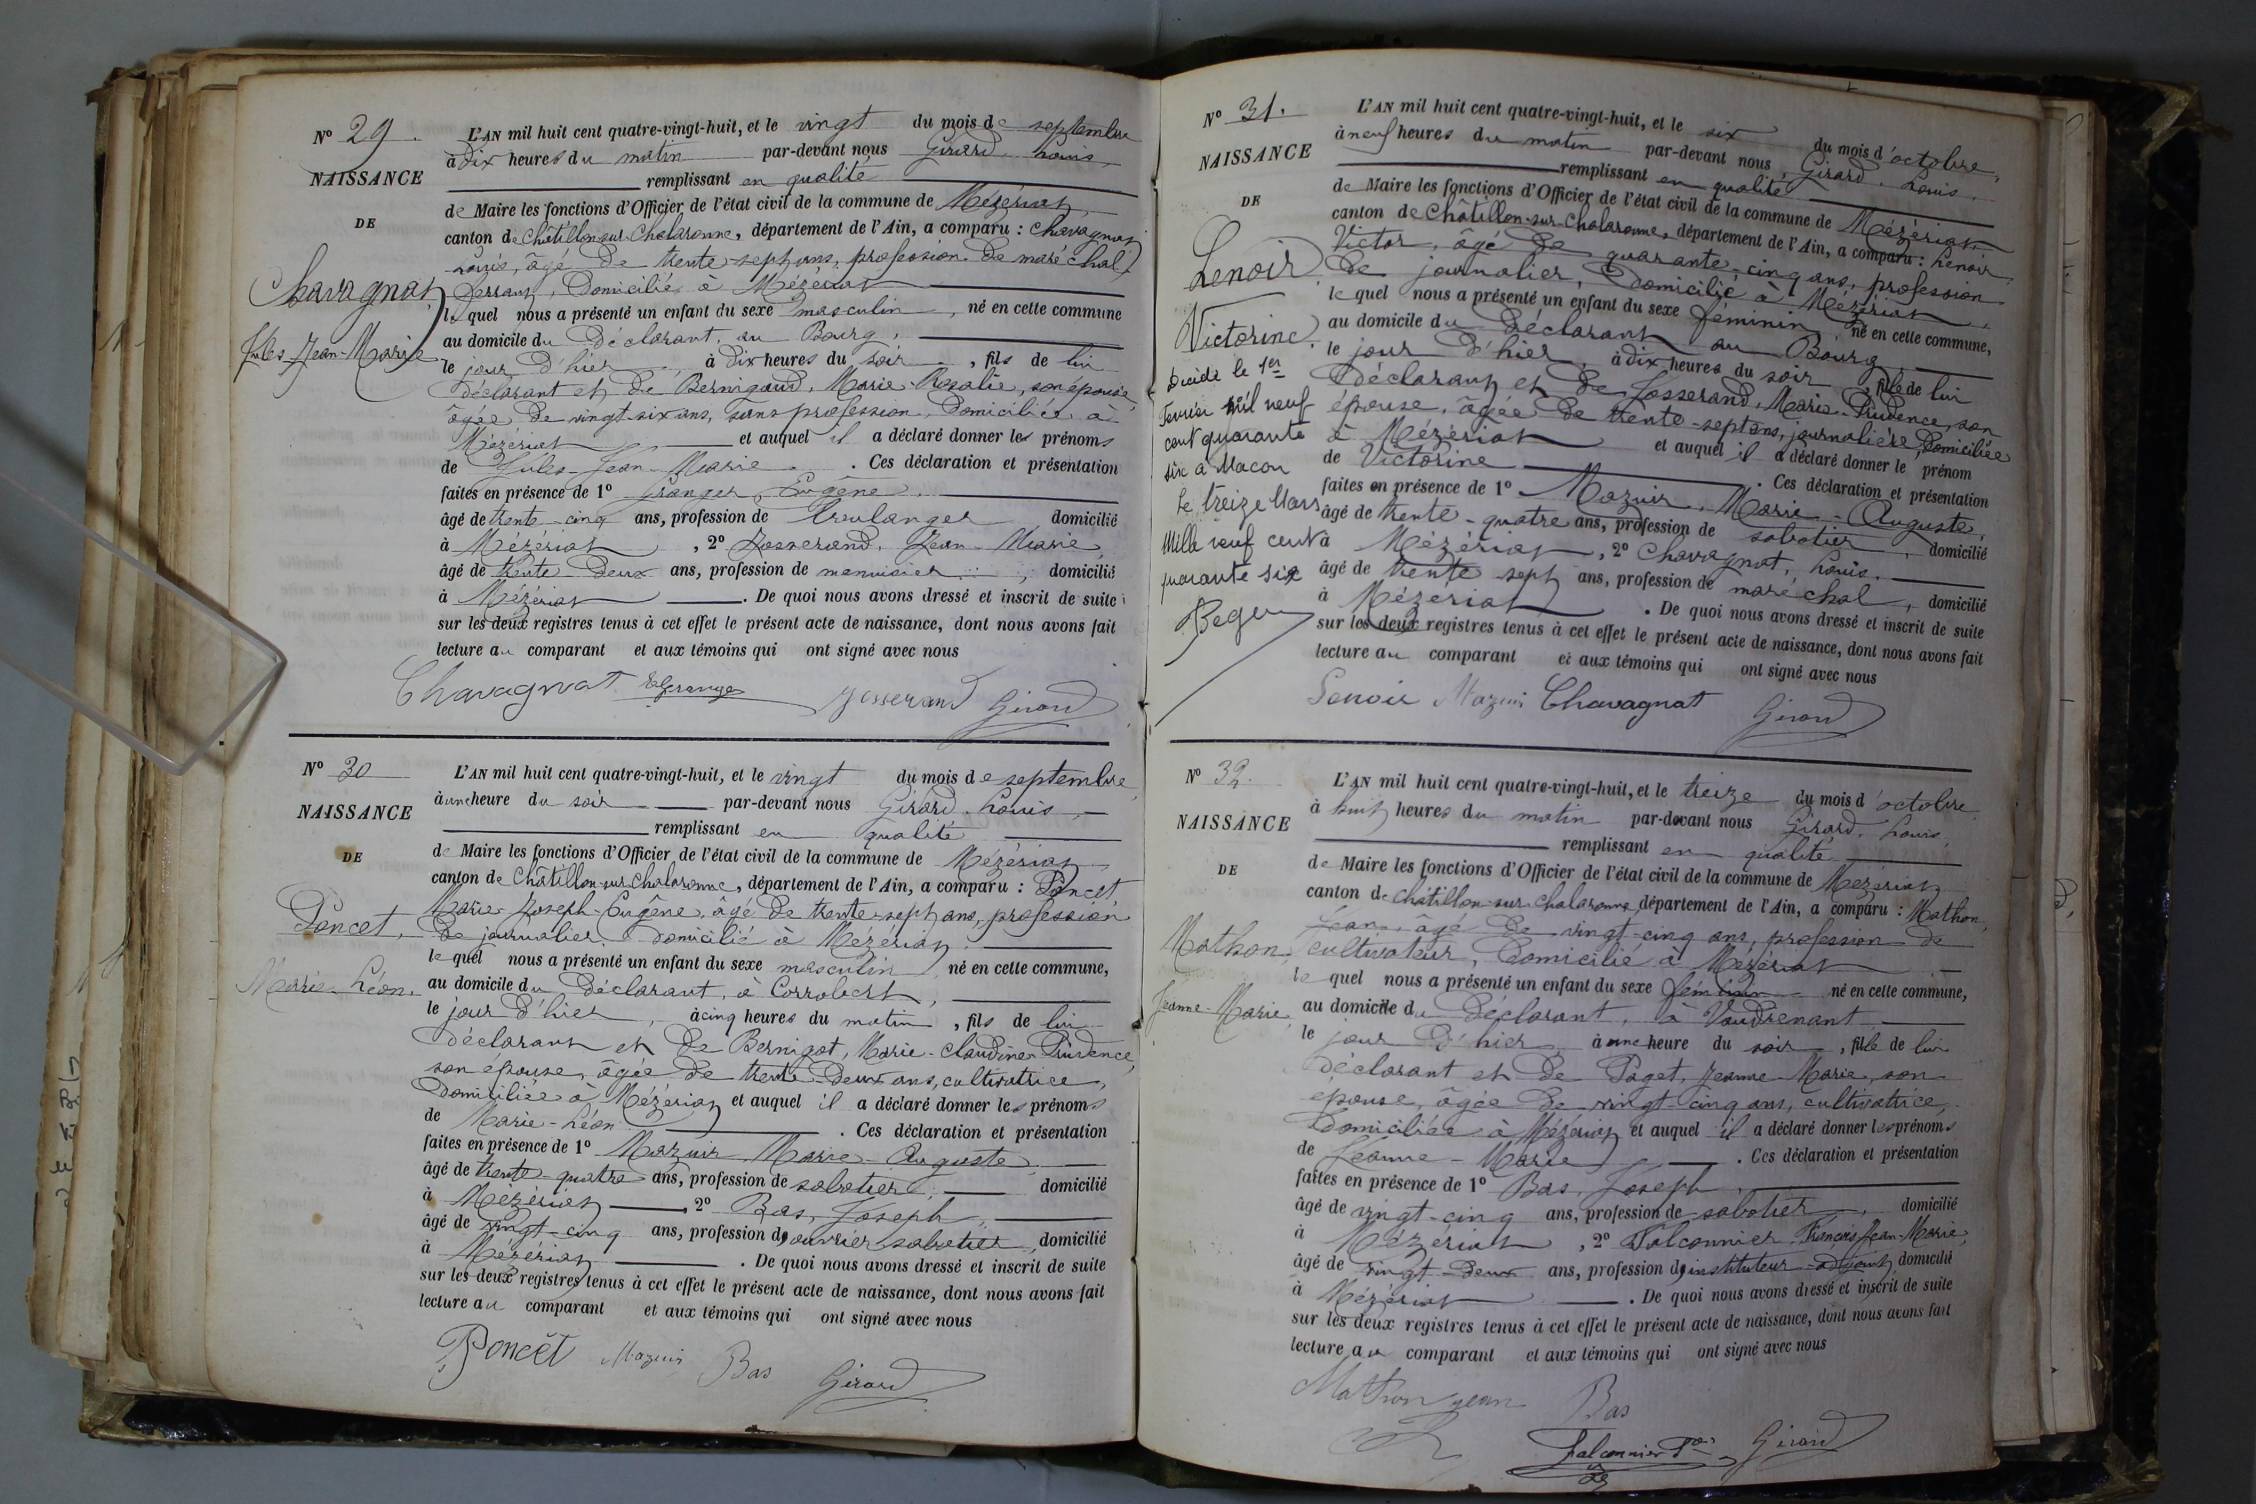 N° 29.
NAISSANCE
DE
Chavagnat
Jules-Jean-Marie
L'AN mil huit cent quatre-vingt-huit, et le vingt du mois de septembre
à dix heures du matin par-devant nous Girard, Louis,
remplissant en qualité
de Maire les fonctions d'Officier de l'état civil de la commune de Mézériat,
canton de Châtillon-sur-Chalaronne, département de l'Ain, a comparu : Chavagnat
Louis, âgé de trente-sept ans, profession de maréchal
ferrant, domicilié à Mézériat
lequel nous a présenté un enfant du sexe masculin, né en cette commune
au domicile du déclarant, au Bourg,
le jour d'hier, à dix heures du soir, fils de lui
déclarant et de Bernigaud, Marie-Rosalie, son épouse,
âgée de vingt-six ans, sans profession, domiciliée à
Mézériat et auquel il a déclaré donner les prénoms
de Jules-Jean-Marie. Ces déclaration et présentation
faites en présence de 1° Granger, Eugène,
âgé de trente-cinq ans, profession de boulanger domicilié
à Mézériat, 2° Josserand, Jean-Marie,
âgé de trente-deux ans, profession de menuisier, domicilié
à Mézériat. De quoi nous avons dressé et inscrit de suite
sur les deux registres tenus à cet effet le présent acte de naissance, dont nous avons fait
lecture au comparant et aux témoins qui ont signé avec nous
Chavagnat Granger Josserand Girard
N° 30
NAISSANCE
DE
Poncet,
Marie-Léon.
L'AN mil huit cent quatre-vingt-huit, et le vingt du mois de septembre,
à une heure du soir par-devant nous Girard, Louis,
remplissant en qualité
de Maire les fonctions d'Officier de l'état civil de la commune de Mézériat,
canton de Châtillon-sur-Chalaronne, département de l'Ain, a comparu : Poncet
Marie-Joseph-Eugène, âgé de trente-sept ans, profession
de journalier, domicilié à Mézériat,
lequel nous a présenté un enfant du sexe masculin, né en cette commune,
au domicile du déclarant, à Corrobert,
le jour d'hier, à cinq heures du matin, fils de lui
déclarant et de Bernigot, Marie-Claudine-Prudence,
son épouse, âgée de trente-deux ans, cultivatrice,
domiciliée à Mézériat et auquel il a déclaré donner les prénoms
de Marie-Léon. Ces déclaration et présentation
faites en présence de 1° Mazuir, Marie-Auguste,
âgé de trente-quatre ans, profession de sabotier, domicilié
à Mézériat, 2° Bas, Joseph,
âgé de vingt-cinq ans, profession d'ouvrier sabotier, domicilié
à Mézériat. De quoi nous avons dressé et inscrit de suite
sur les deux registres tenus à cet effet le présent acte de naissance, dont nous avons fait
lecture au comparant et aux témoins qui ont signé avec nous
Poncet Mazuir Bas Girard
N° 31.
NAISSANCE
DE
Lenoir,
Victorine.
Décidé le 1er
Fevrier mil neuf
cent quarante
six à Macon
Le treize Mars
Mille neuf cent
quarante six
L'AN mil huit cent quatre-vingt-huit, et le six du mois d'octobre,
à neuf heures du matin par-devant nous, Girard, Louis,
remplissant en qualité
de Maire les fonctions d'Officier de l'état civil de la commune de Mézériat
canton de Châtillon-sur-Chalaronne, département de l'Ain, a comparu : Lenoir,
Victor, âgé de quarante-cinq ans, profession
de journalier, domicilié à Mézériat,
lequel nous a présenté un enfant du sexe féminin né en cette commune,
au domicile du déclarant au Bourg
le jour d'hier, à dix heures du soir, fille de lui
déclarant et de Josserand, Marie-Prudence, son
épouse, âgée de trente-sept ans, journalière, domiciliée
à Mézériat et auquel il a déclaré donner le prénom
de Victorine. Ces déclaration et présentation
faites en présence de 1° Mazuir, Marie-Auguste,
âgé de trente-quatre ans, profession de sabotier, domicilié
à Mézériat, 2° Chavagnat, Louis,
âgé de trente-sept ans, profession de maréchal, domicilié
à Mézériat. De quoi nous avons dressé et inscrit de suite
sur les deux registres tenus à cet effet le présent acte de naissance, dont nous avons fait
lecture au comparant et aux témoins qui ont signé avec nous
Lenoir Mazuir Chavagnat Girard
N° 32.
NAISSANCE
DE
Mathon,
Jeanne-Marie
L'AN mil huit cent quatre-vingt-huit, et le treize du mois d'octobre
à huit heures du matin par-devant nous Girard, Louis,
remplissant en qualité
de Maire les fonctions d'Officier de l'état civil de la commune de Mézériat
canton de Châtillon-sur-Chalaronne, département de l'Ain, a comparu : Mathon,
Jean, âgé de vingt-cinq ans, profession de
cultivateur, domicilié à Mézériat
lequel nous a présenté un enfant du sexe féminin né en cette commune,
au domicile du déclarant, à Vaudrenant
le jour d'hier à une heure du soir, fille de lui
déclarant et de Paget, Jeanne-Marie, son
épouse, âgée de vingt-cinq ans, cultivatrice,
domiciliée à Mézériat et auquel il a déclaré donner les prénoms
de Jeanne-Marie. Ces déclaration et présentation
faites en présence de 1° Bas, Joseph,
âgé de vingt-cinq ans, profession de sabotier, domicilié
à Mézériat, 2° Falconnier, François-Jean-Marie,
âgé de vingt-deux ans, profession d'instituteur-adjoint, domicilié
à Mézériat. De quoi nous avons dressé et inscrit de suite
sur les deux registres tenus à cet effet le présent acte de naissance, dont nous avons fait
lecture au comparant et aux témoins qui ont signé avec nous
Mathon jean Bas
Falconnier Girard